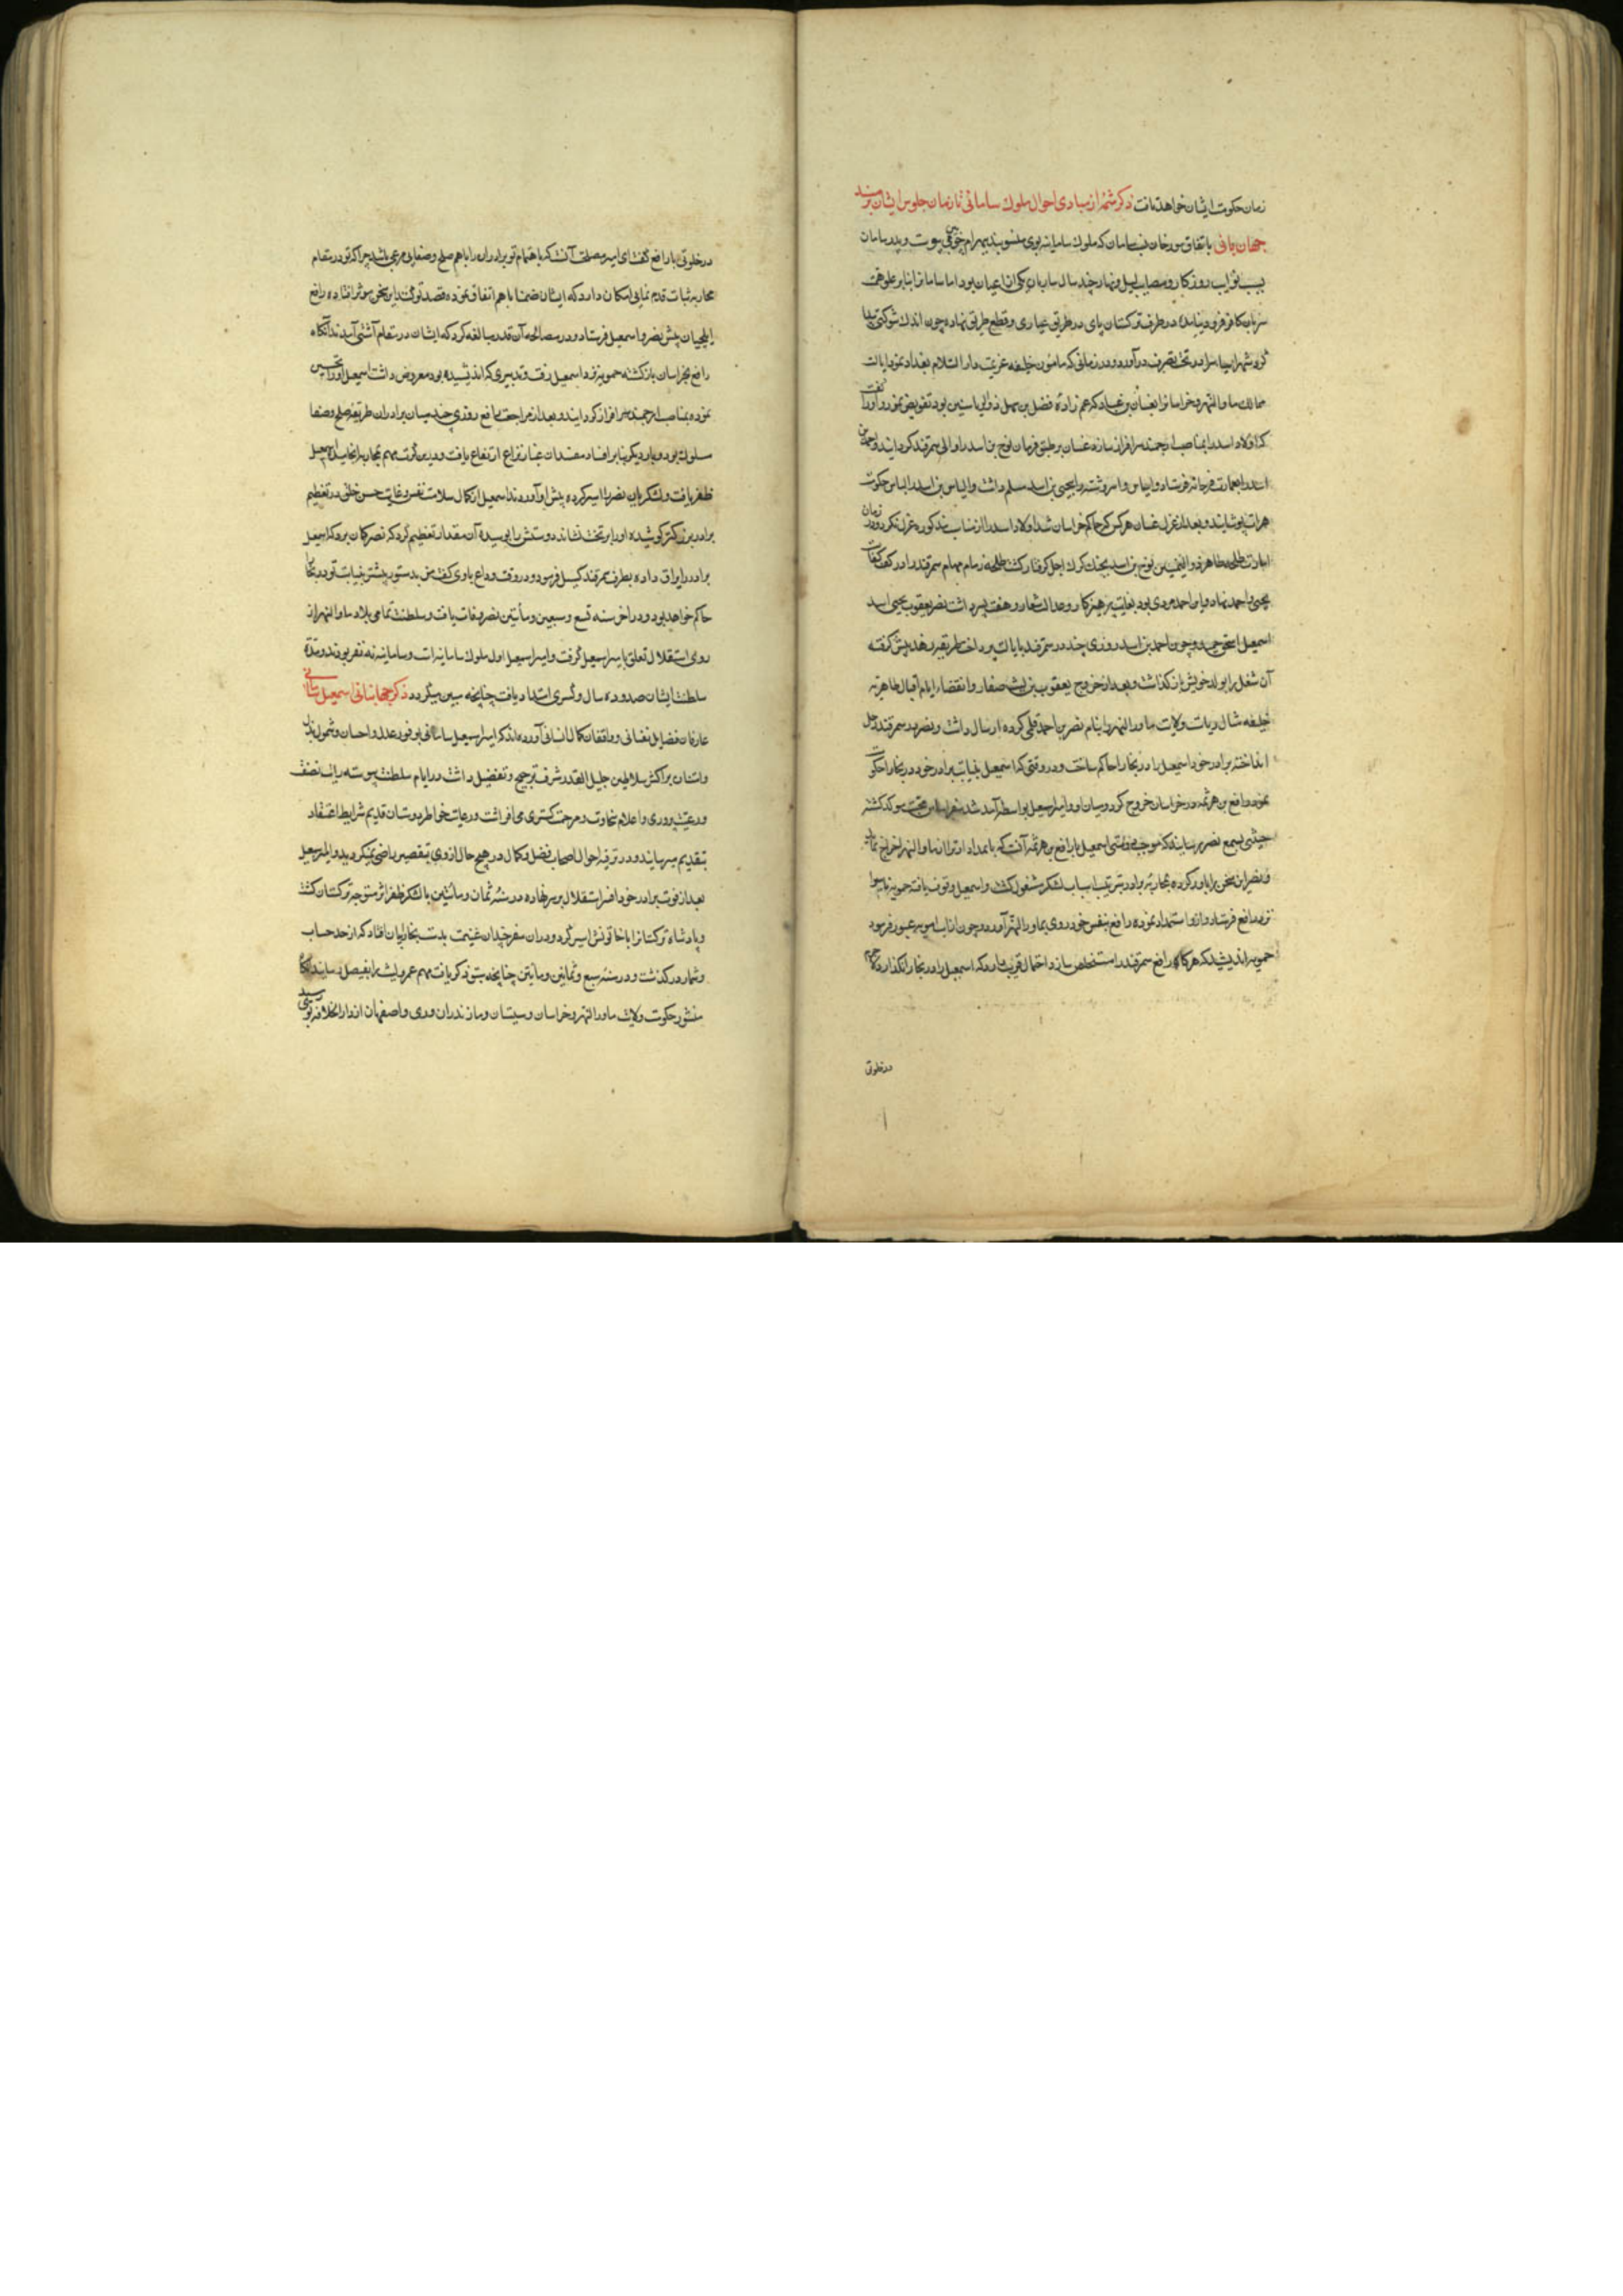 زمان حکومت ایشان خواهد یافت ذکر شمهٔ از مبادی احوال ملوک سامانی تا زمان جلوس ایشان بر مسند
جهان بانی باتفاق مورخان نسب سامان که ملوک سامانیه بوی منسوبند ببهرام چوبین می پیوست و پدر سامان
بسبب نوایب روزکار و مصایب لیل و نهار چند سال ساربان یکی از اعیان بود اما سامانرا بنابر علو همت
سر بان کار فرو نیامده در طرف ترکستان پای در طریق عیاری و قطع طریق نهاد و چون اندک شوکتی پیدا
کرد شهر را در تحت تصرف در آورد و در زمانی که مامون خلیفه عزیمت دار السلام بغداد نمود ایالت
ممالک ماوراالنهر و خراسانرا بغسان بن عباد که عم زادهٔ فضل بن سهل ذوالریاستین بود تفویض نمود و او را گفت
که اولاد اسد را بمناصب ارجمند سرافراز سازد غسان بر طبق فرمان نوح بن اسد را والی سمرقند کردانید و احمد بن
اسد را بعمارت فرغانه فرستاد و شاش و اسروشنه را بیحیی بن اسد مسلم داشت و الیاس بن اسد را لباس حکومت
هرات پوشانید و بعد از عزل غسان هر کس که حاکم خراسان شد اولاد اسد را از مناصب مذکوره عزل نکرد و در زمان
امارت طلحه بن طاهر ذوالیمینین نوح بن اسد بچنک کرک اجل کرفتار کشت طلحه زمام مهام سمرقند را در کف کفایت
یحیی و احمد نهاد و این احمد مردی بود بغایت پرهیزکار و عدالت شعار و هفت پسر داشت نصر یعقوب یحیی اسد
اسمعیل اسحق حمید و چون احمد بن اسد روزی چند در سمرقند بایالت پرداخت طریقهٔ زهد پیش کرفته
آن شغل را بولد خویش باز کذاشت و بعد از خروج یعقوب بن لیث صفار و انقضاء ایام اقبال طاهریه
خلیفه مثال ریاست ولایت ماوراالنهر را بنام نصر بن احمد قلمی کرده ارسال داشت و نصر در سمرقند رحل
انداخته برادر خود اسمعیل را در بخارا حاکم ساخت و در وقتی که اسمعیل بنیابت برادر خود در بخارا حکومت
نمود رافع بن هرثمه در خراسان خروج کرد و میان او و امیر اسمعیل بواسطهٔ آمد شد سفرا اساس محبت موکد کشته
جمعی بسمع نصر رسانیدند که موجب دوستی اسمعیل با رافع بن هرثمه آنست که بامداد او ترا از ماوراالنهر اخراج نماید
و نصر این سخن را باور کرده بمحاربهٔ برادر بترتیب اسباب لشکر مشغول کشت و اسمعیل وقوف یافته حمویه را
نزد رافع فرستاد و ازو استمداد نمود و رافع بنفس خود روی بماوراالنهر آورد و چون از آب امویه عبور فرمود
حمویه اندیشید که هرکاه رافع سمرقند را مستخلص سازد احتمال قریب دارد که اسمعیل را در بخارا نکذارد
در خلوتی
در خلوتی با رافع کفت ای امیر مصلحت آنست که باهتمام تو برادران را با هم صلح و صفایی مرعی باشد چرا که تو در مقام
محاربه ثبات قدم نمایی امکان دارد که ایشان ضمنا با هم اتفاق نموده قصد تو کنند این سخن موثر افتاده رافع
ایلچیان پیش نصر و اسمعیل فرستاد و در مصالحه آن قدر مبالغه کرد که ایشان در مقام آشتی آمدند آنکاه
رافع بخراسان بازکشته حمویه نزد اسمعیل رفت و تدبیری که اندیشیده بود معروض داشت اسمعیل او را تحسین
نموده بمناصب ارجمند سرافراز کردانید و بعد از مراجعت رافع روزی چند میان برادران طریقهٔ صلح و صفا
مسلوک بود و بار دیکر بنابر افساد مفسدان غبار نزاع ارتفاع یافت و درین کرت مهم بمحاربه انجامید اسمعیل
ظفر یافت و لشکریان نصر را اسیر کرده پیش او آوردند اسمعیل از کمال سلامت نفس و غایت حسن خلق در تعظیم
برادر بزرکتر کوشیده او را بر تخت نشانده و دستش را بوسید و آن مقدار تعظیم کرد که نصر کمان برد که اسمعیل
برادر را یراق داده بطرف سمرقند کسیل فرمود و در وقت وداع با وی کفت من بدستور پیشتر بنیابت تو در بخارا
حاکم خواهم بود و در اخر سنه تسع و سبعین و مأتین نصر وفات یافت و سلطنت تمامی بلاد ماوراالنهر از
روی استقلال تعلق بامیر اسمعیل کرفت و امیر اسمعیل اول ملوک سامانیه است و سامانیه نه نفر بودند و مدة
سلطنت ایشان صد و ده سال و کسری امتداد یافت چنانچه مبین میکردد ذکر جهانبانی اسمعیل سامانی
عارفان فضایل نفسانی و واقفان کمال انسانی آورده اند که امیر اسمعیل سامانی بوفور عدل و احسان و شمول بذل
و امتنان بر اکثر سلاطین جلیل القدر شرف ترجیح و تفضیل داشت در ایام سلطنت پیوسته رایت نصفت
و رعیت پروری و اعلام سخاوت و مرحمت کستری می افراشت و رعایت خاطر دوستان قدیم شرایط اعتقاد
بتقدیم میرسانید و در ترفیه احوال اصحاب فضل و کمال در هیچ حال از وی بتقصیر راضی نمیکردید و امیر اسمعیل
بعد از فوت برادر خود افسر استقلال بر سر نهاده در سنهٔ ثمان و مأتین با لشکر ظفر اثر متوجه ترکستان کشت
و پادشاه ترکستانرا با خاتونش اسیر کرد و در ان سفر چندان غنیمت بدست بخاریان افتاد که از حد حساب
و شمار درکذشت و در سنهٔ سبع و ثمانین و مأتین چنانچه سبق ذکر یافت مهم عمرو لیث را بفیصل رسانید آنکاه
منشور حکومت ولایت ماوراالنهر و خراسان و سیستان و مازندران و ری و اصفهان از دار الخلافه بوی رسید